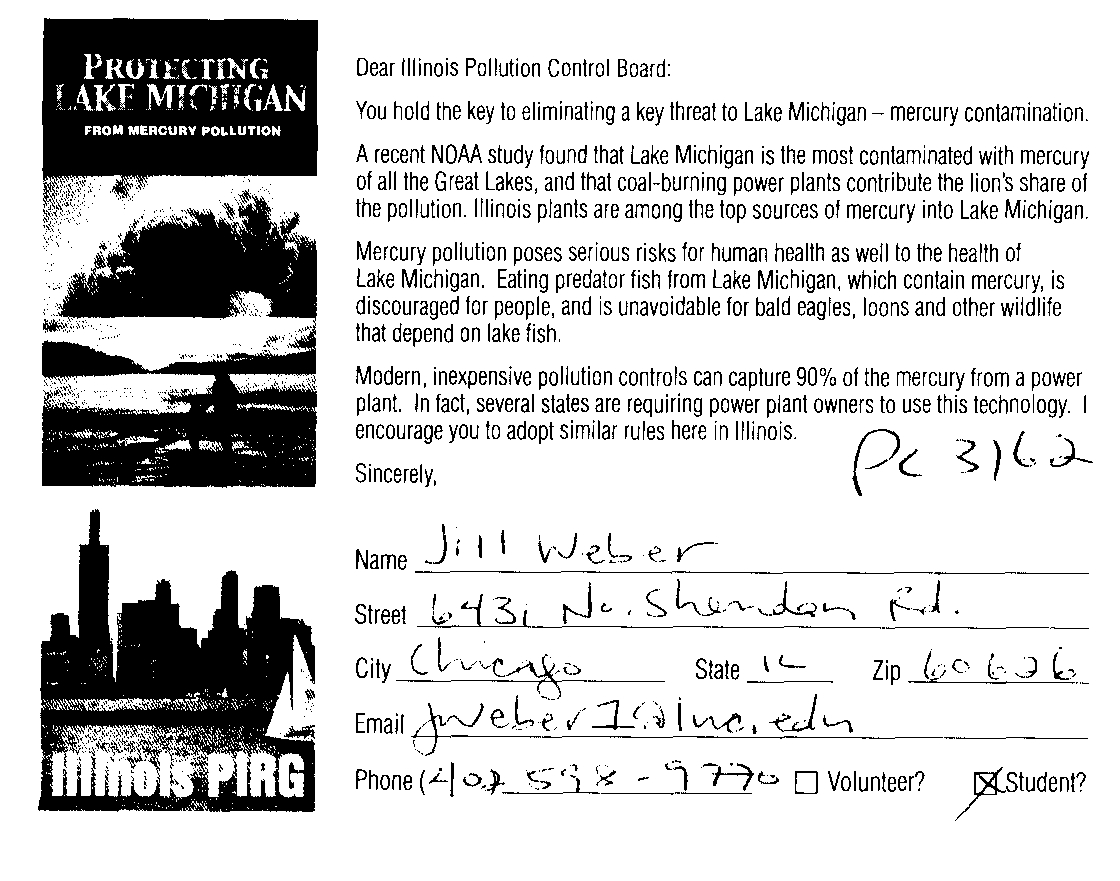 PROTECTING
LAKE MICHIGAN
FROM MERCURY POLLUTION
Dear Illinois Pollution Control Board:
You hold the key to eliminating a key threat to Lake Michigan – mercury contamination.
A recent NOAA study found that Lake Michigan is the most contaminated with mercury
of all the Great Lakes, and that coal-burning power plants contribute the lion's share of
the pollution. Illinois plants are among the top sources of mercury into Lake Michigan.
Mercury pollution poses serious risks for human health as well to the health of
Lake Michigan. Eating predator fish from Lake Michigan, which contain mercury, is
discouraged for people, and is unavoidable for bald eagles, loons and other wildlife
that depend on lake fish.
Modern, inexpensive pollution controls can capture 90% of the mercury from a power
plant. In fact, several states are requiring power plant owners to use this technology. I
encourage you to adopt similar rules here in Illinois.
PC 3162
Sincerely,
Name Jill Weber
Street 6431 No. Sheridan Rd.
City Chicago State IL Zip 60626
Email jweber1@luc.edu
Phone (402 598-9770 Volunteer? Student?
Illinois PIRG